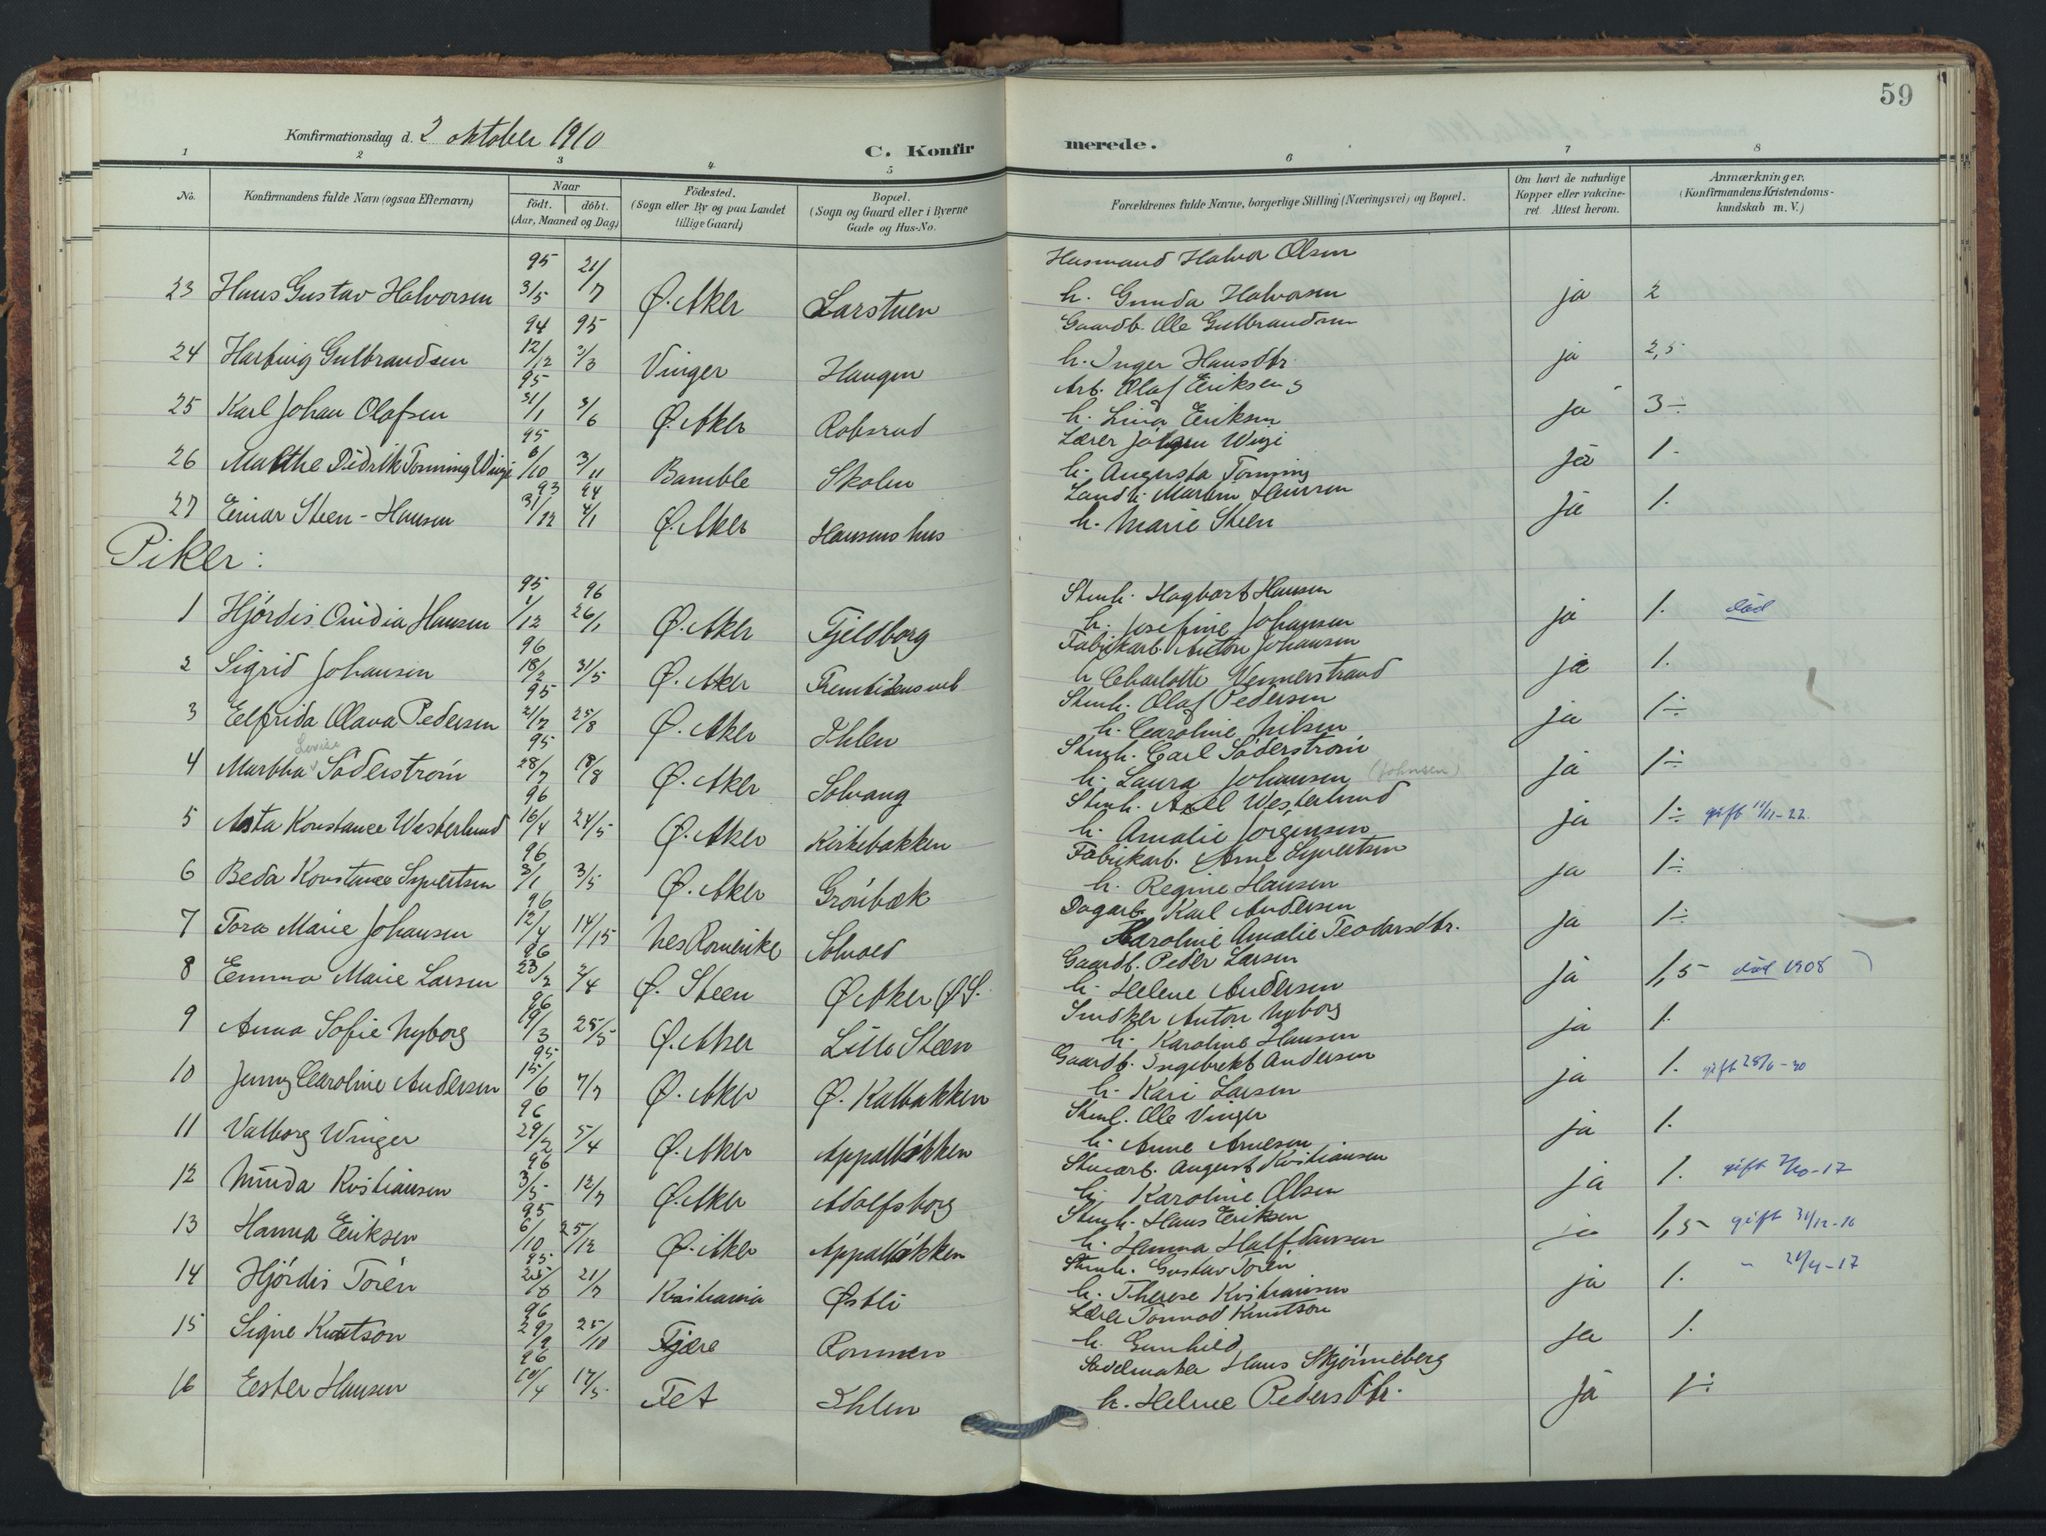 59
Konfirmationsdag d. 2 oktober 1910
C. Konfirmerede.
1 2 3 4 5 6 7 8
No. Konfirmandens fulde Navn (ogsaa Efternavn) Naar födt. döbt. (Aar, Maaned og Dag) Födested. (Sogn eller By og paa Landet tillige Gaard) Bopæl. (Sogn og Gaard eller i Byerne Gade og Hus-No. Forældrenes fulde Navne, borgerlige Stilling (Næringsvei) og Bopæl. Om havt de naturlige Kopper eller vaccineret. Attest herom. Anmærkninger. (Konfirmandens Kristendomskundskab m. V.)
95 21/7 Husmand Halvor Olsen
23 Hans Gustav Halvorsen 3/5 Ø. Aker Larstuen h. Gunda Halvorsen ja 2
94 95 Gaardb. Ole Gulbrandsen
24 Hartvig Gulbrandsen 12/12 3/3 Vinger Haugen h. Inger Hansdtr. ja 2,5
95 Arb. Olaf Eriksen
25 Karl Johan Olafsen 31/1 3/6 Ø. Aker Robsrud h. Lina Eriksen ja 3÷
95 Lærer Wigi
26 Malthe Didrik Tonning Wigi 6/10 3/11 Bamble Skolen h. Augusta Tonning ja 1.
93 94 Landh. Martin Hansen
27 Einar Steen-Hansen 31/12 4/1 Ø. Aker Hansens hus h. Marie Steen ja 1.
Piker:
95 96 Stenh. Hagbart Hansen
1 Hjördis Ovidia Hansen 1/12 26/1 Ø. Aker Fjeldborg h. Josefine Johansen ja 1. död
96 Fabrikarb. Anton Johansen
2 Sigrid Johansen 18/2 31/5 Ø. Aker h Charlotte Vennerstrand ja 1.
95 Stenh. Olaf Pedersen
3 Elfrida Olava Pedersen 21/7 25/8 Ø. Aker Ihlen h. Caroline Nilsen ja 1÷
Lovise 95 Stenh. Carl Söderström
4 Martha Söderström 28/7 18/8 Ø. Aker Solvang h. Laura Johansen (Johnsen) ja 1÷
96 Stenh. Axel Westerlund
5 Asta Konstance Westerlund 16/4 24/5 Ø. Aker Kirkebakken h. Amalie Jörgensen ja 1÷ gift 11/11-22
96 Fabrikarb. Arne Syvertsen
6 Beda Konstance Syvertsen 3/1 3/5 Ø. Aker Grönbæk h. Regine Hansen ja 1÷
96 Dagarb. Karl Andersen
7 Tora Marie Johansen 12/4 14/15 Nes Romerike Solvold Karoline Amalie Teodorsdtr. ja 1÷
96 Gaardb. Peder Larsen
8 Emma Marie Larsen 23/2 2/4 Ø. Steen Ø. Aker (Ø S. h. Helene Andersen ja 1,5 död 1908
96 Snedker Anton Nyborg
9 Anna Sofie Nyborg 19/3 25/5 Ø. Aker Lille Steen h. Karoline Hansen ja 1.
95 Gaardb. Ingebrekt Andersen
10 Jenny Caroline Andersen 15/6 7/7 Ø. Aker Ø. Kalbakken h. Kari Larsen ja 1. gift 28/6-30
96 Stenh. Olle Vinger
11 Valborg Winger 29/2 5/4 Ø. Aker Appalløkken h. Anne Arnesen ja 1.
96 Stenarb. August Kristiansen
12 Minda Kristiansen 3/5 12/7 Ø. Aker Adolfsborg h. Karoline Olsen ja 1. gift 7/10-17
95 Stenh. Hans Eriksen
13 Hanna Eriksen 6/10 25/12 Ø. Aker Appalløkken h. Hanna Halfdansen ja 1,5 gift 31/12-16
95 Stenh. Gustav Torén
14 Hjördis Torén 21/7 Kristiania Østli h. Therese Kristiansen ja 1. " 21/4-17
96 Lærer Tormod Knutson
15 Signe Knutson 29/9 25/10 Fjære Rommen h. Gunhild ja 1.
96 Sadelmaker Hans Skjønneberg
16 Ester Hansen 10/4 17/5 Fet Ihlen h. Helene Pedersdtr. ja 1÷